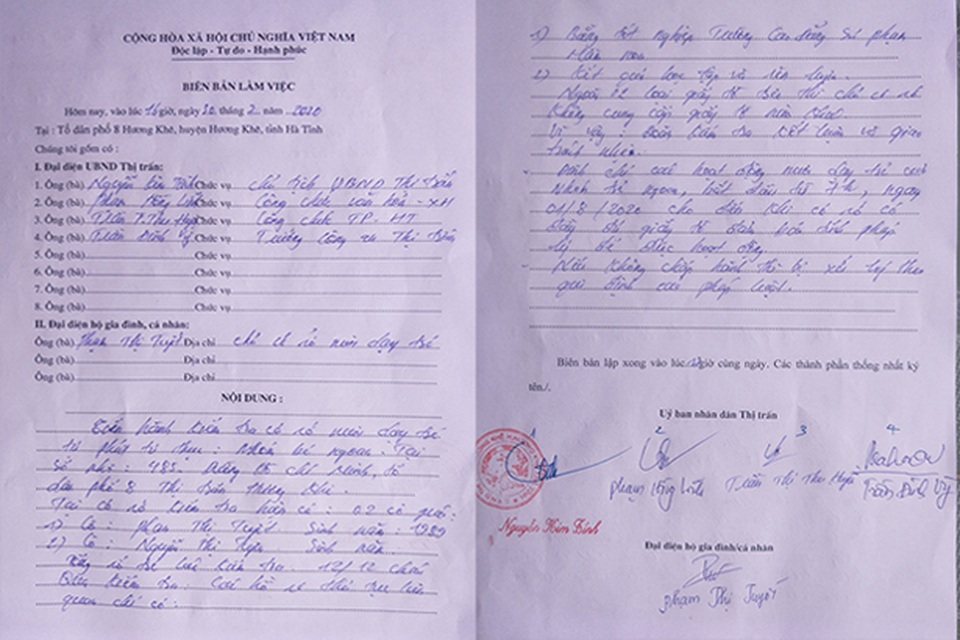 CỘNG HÒA XÃ HỘI CHỦ NGHĨA VIỆT NAM
Độc lập - Tự do - Hạnh phúc
BIÊN BẢN LÀM VIỆC
Hôm nay, vào lúc giờ, ngày 30 tháng 2 năm 2020
Tại : Tổ dân phố 8 Hương Khê, huyện Hương Khê, tỉnh Hà Tĩnh
Chúng tôi gồm có :
I. Đại diện UBND Thị trấn:
1. Ông (bà) Nguyễn Chức vụ chủ tịch UBND Thị trấn
2. Ông (bà) Phan Chức vụ Công chức văn hóa - XH
3. Ông (bà) Trần T. Thu Chức vụ Công chức TP - HT
4. Ông (bà) Trần Đình Vỹ Chức vụ Trưởng Công an Thị trấn
5. Ông (bà) Chức vụ
6. Ông (bà) Chức vụ
7. Ông (bà) Chức vụ
8. Ông (bà) Chức vụ
II. Đại diện hộ gia đình, cá nhân:
Ông (bà) Phạm Thị Tuyết Địa chỉ chủ cơ sở nuôi dạy trẻ
Ông (bà) Địa chỉ
Ông (bà) Địa chỉ
NỘI DUNG :
Tiến hành kiểm tra cơ sở nuôi dạy trẻ
tự phát tư thục : Nhóm bé ngoan. Tại
Số nhà : 483. đường Hồ Chí Minh, tổ
dân phố 8 Thị trấn Hương Khê.
Tại cơ sở kiểm tra hiện có : 02 cô giáo:
1) Cô : Phạm Thị Tuyết Sinh năm : 1989
2) Cô : Nguyễn Thị Sinh năm
Tổng số trẻ lúc kiểm tra : 12/12 cháu
Qua kiểm tra : Các hồ sơ thủ tục liên
quan chỉ có :
1) Bằng tốt nghiệp Trường Cao đẳng Sư phạm
Mầm non
2) Kết quả học tập và rèn luyện.
Ngoài 02 loại giấy tờ trên thì chủ cơ sở
không cung cấp giấy tờ nào khác.
Vì vậy : Đoàn kiểm tra kết luận và giao
trách nhiệm.
- Đình chỉ các hoạt động nuôi dạy trẻ của
nhóm bé ngoan, bắt đầu từ 7h, ngày
01/8/2020 cho đến khi cơ sở có
đầy đủ giấy tờ đảm bảo tính pháp
lý để được hoạt động.
- Nếu không chấp hành thì bị xử lý theo
quy định của pháp luật.
Biên bản lập xong vào lúc giờ cùng ngày. Các thành phần thống nhất ký
tên./.
Uỷ ban nhân dân Thị trấn
1 2 3 4
Phạm Hồng Linh Trần Thị Thu Huyền Trần Đình Vỹ
Nguyễn Kim Bình
Đại diện hộ gia đình/cá nhân
Phạm Thị Tuyết